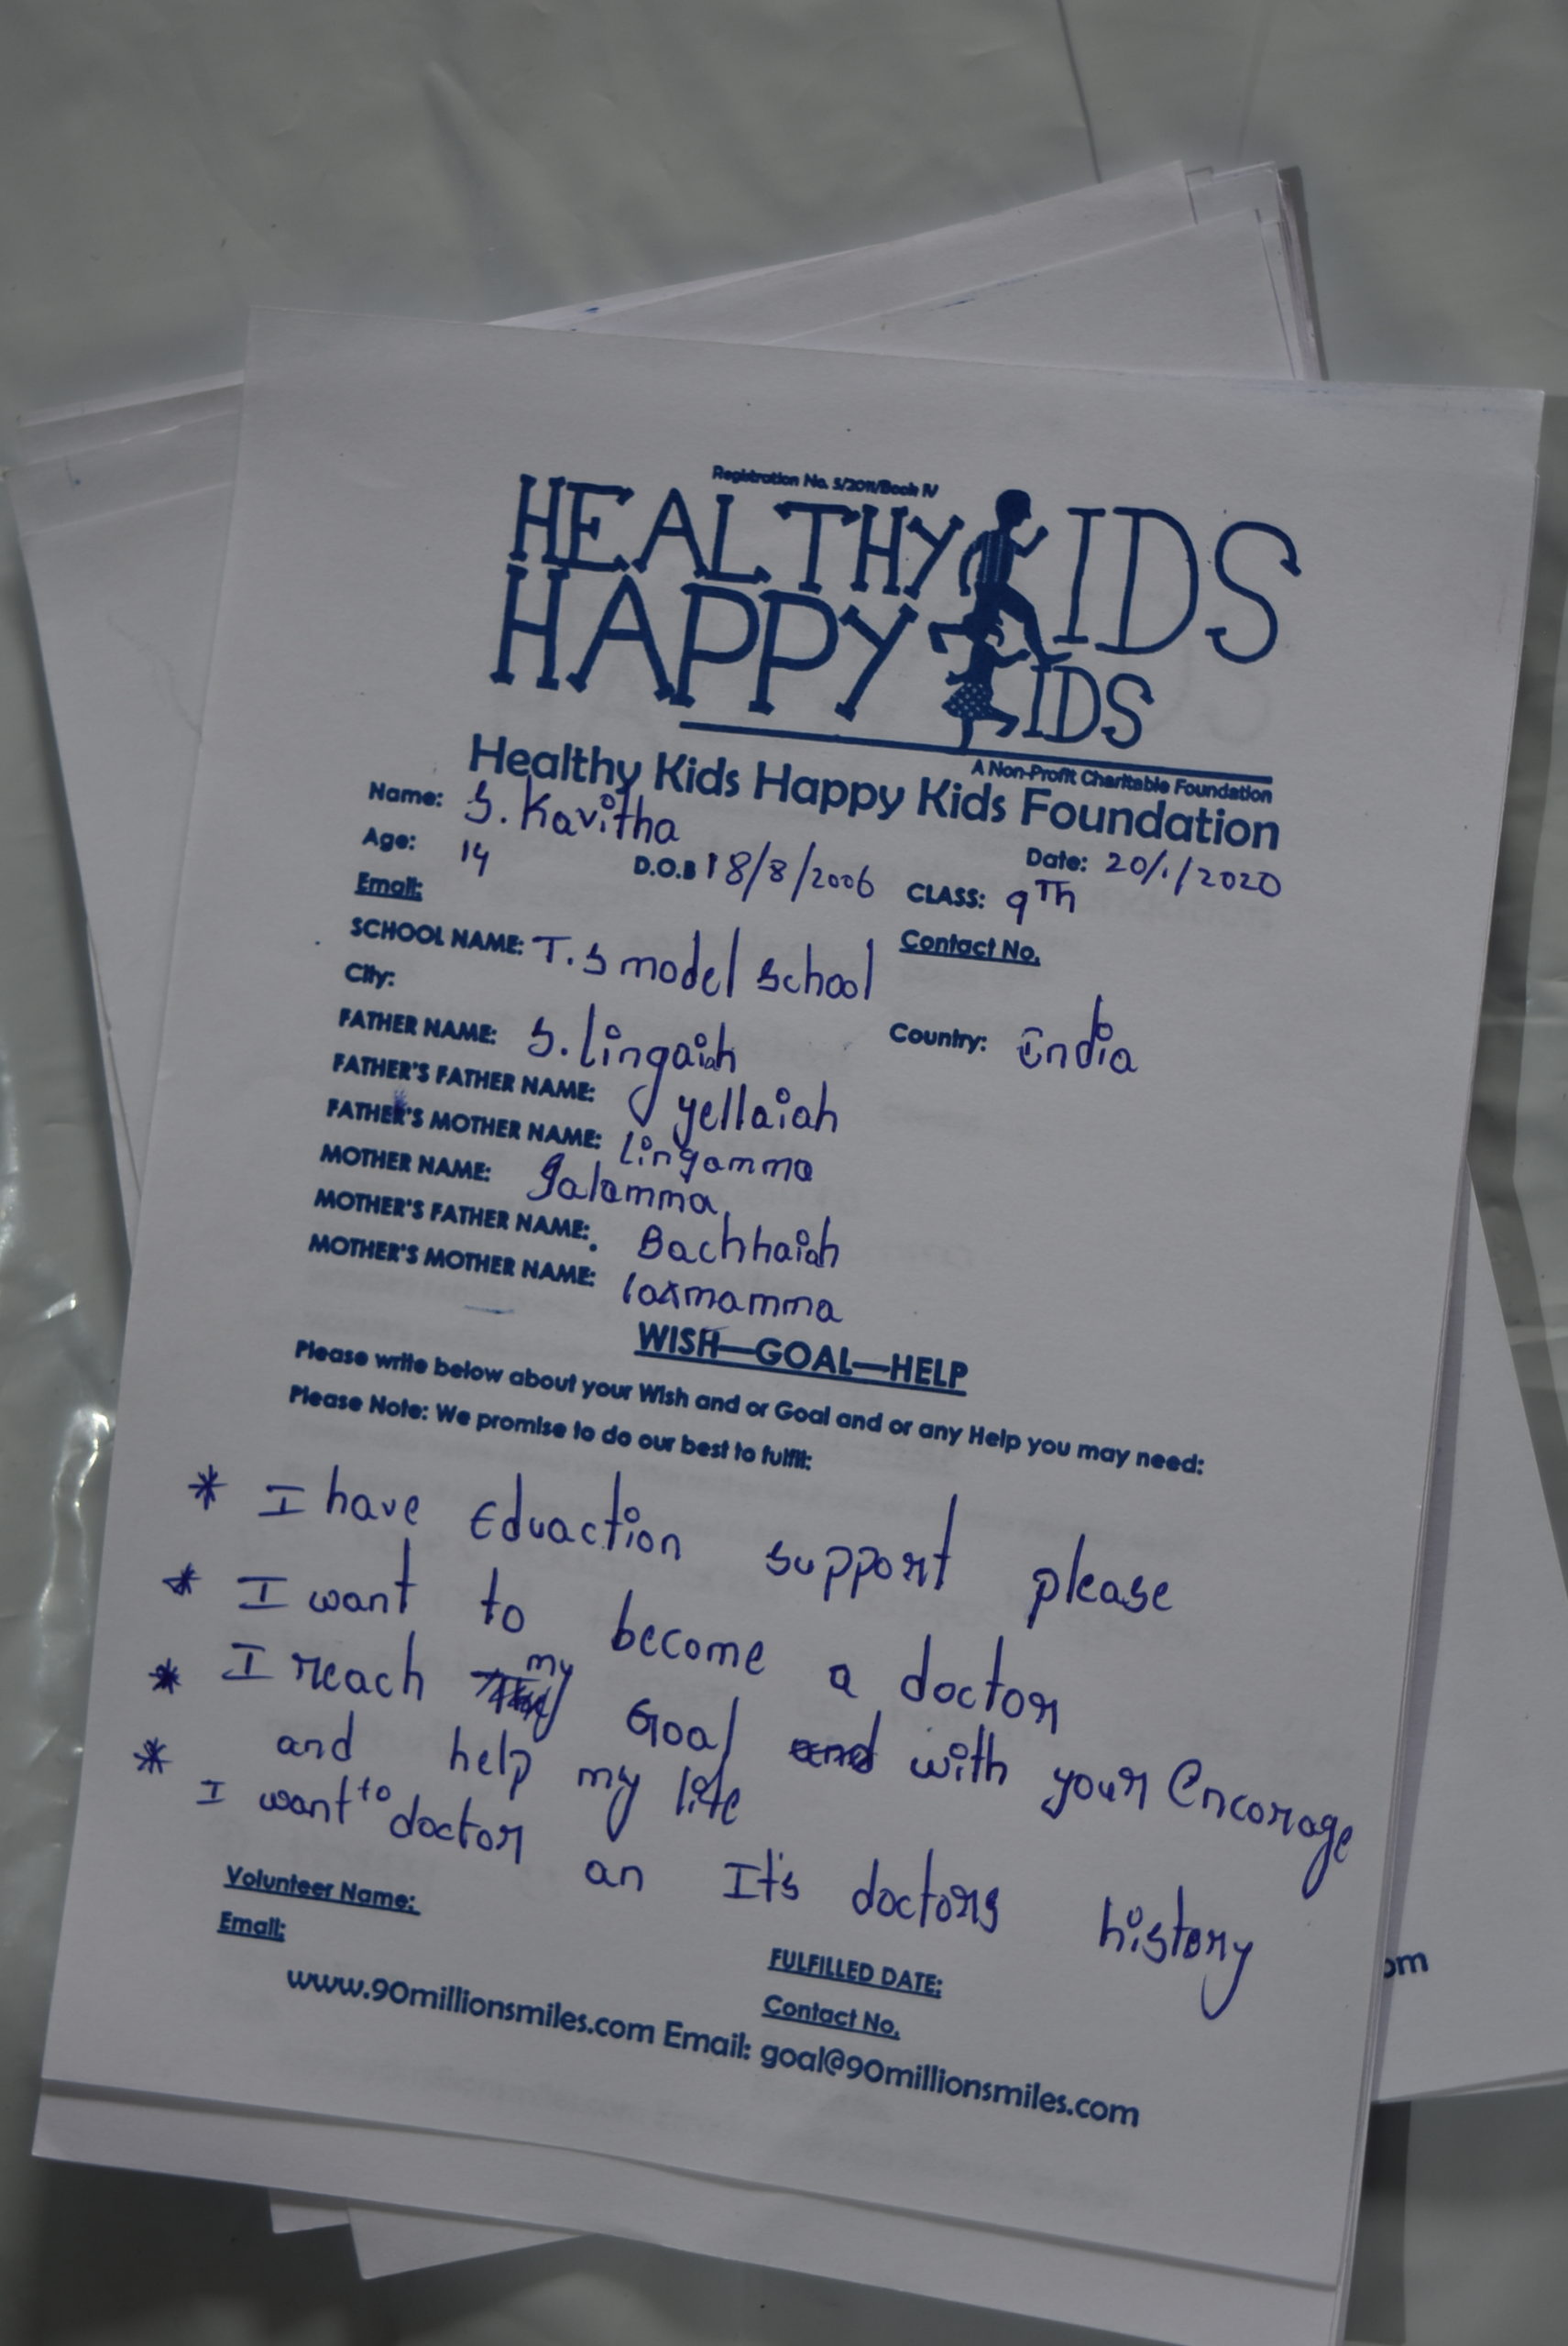 Registration No. 5/2011/Book IV
HEALTHY KIDS
HAPPY KIDS
A Non-Profit Charitable Foundation
Healthy Kids Happy Kids Foundation
Name: S. Kavitha
Date: 20/1/2020
Age: 14 D.O.B 18/8/2006 CLASS: 9Th
Email: Contact No.
SCHOOL NAME: T.S model school
City: Country: India
FATHER NAME: S. lingaiah
FATHER'S FATHER NAME: yellaiah
FATHER'S MOTHER NAME: lingamma
MOTHER NAME: Jalamma
MOTHER'S FATHER NAME: Bachhaiah
MOTHER'S MOTHER NAME: laxmamma
WISH—GOAL—HELP
Please write below about your Wish and or Goal and or any Help you may need:
Please Note: We promise to do our best to fulfil:
* I have Eduaction support please
* I want to become a doctor
* I reach my Goal and with your Encorage
and help my life
* I want to doctor an It's doctors history
Volunteer Name: FULFILLED DATE:
Email: Contact No.
www.90millionsmiles.com Email: goal@90millionsmiles.com
om